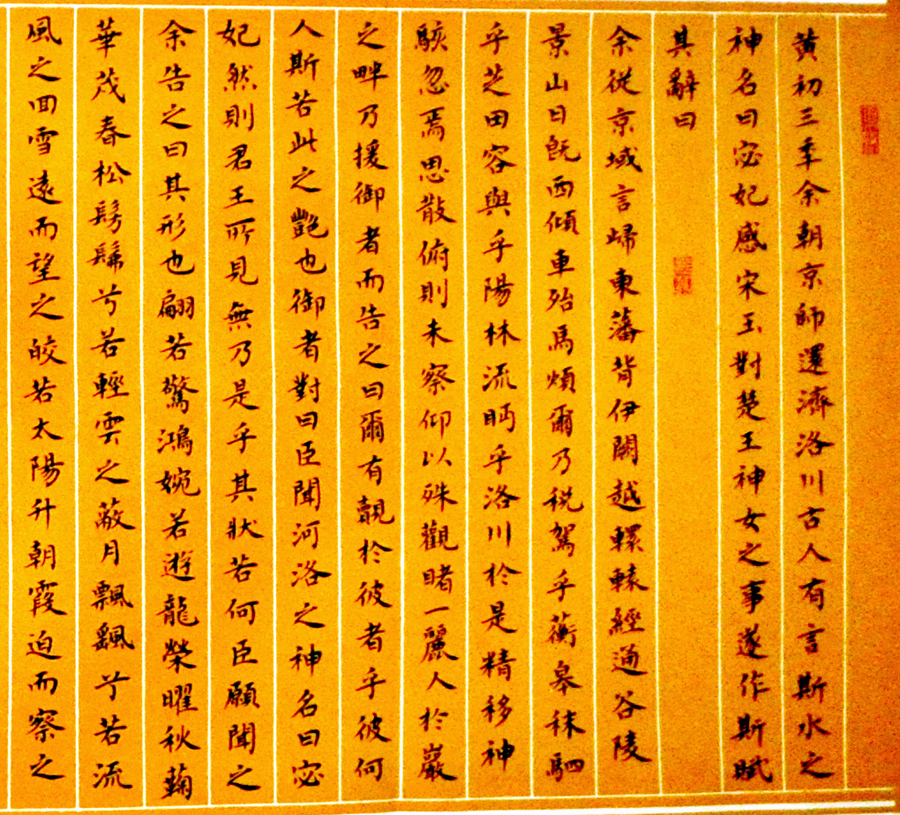 黄初三秊余朝京師還濟洛川古人有言斯水之
神名曰宓妃感宋玉對楚王神女之事遂作斯賦
其辭曰
余從京域言歸東藩背伊闕越轘轅經通谷陵
景山日既西傾車殆馬煩爾乃税駕乎蘅皋秣駟
乎芝田容與乎陽林流眄乎洛川於是精移神
駭忽焉思散俯則未察仰以殊觀睹一麗人於巖
之畔乃援御者而告之曰爾有覿於彼者乎彼何
人斯若此之豓也御者對曰臣聞河洛之神名曰宓
妃然則君王所見無乃是乎其狀若何臣願聞之
余告之曰其形也翩若驚鴻婉若遊龍榮曜秋菊
華茂春松髣髴兮若輕雲之蔽月飄颻兮若流
風之回雪遠而望之皎若太陽升朝霞迫而察之